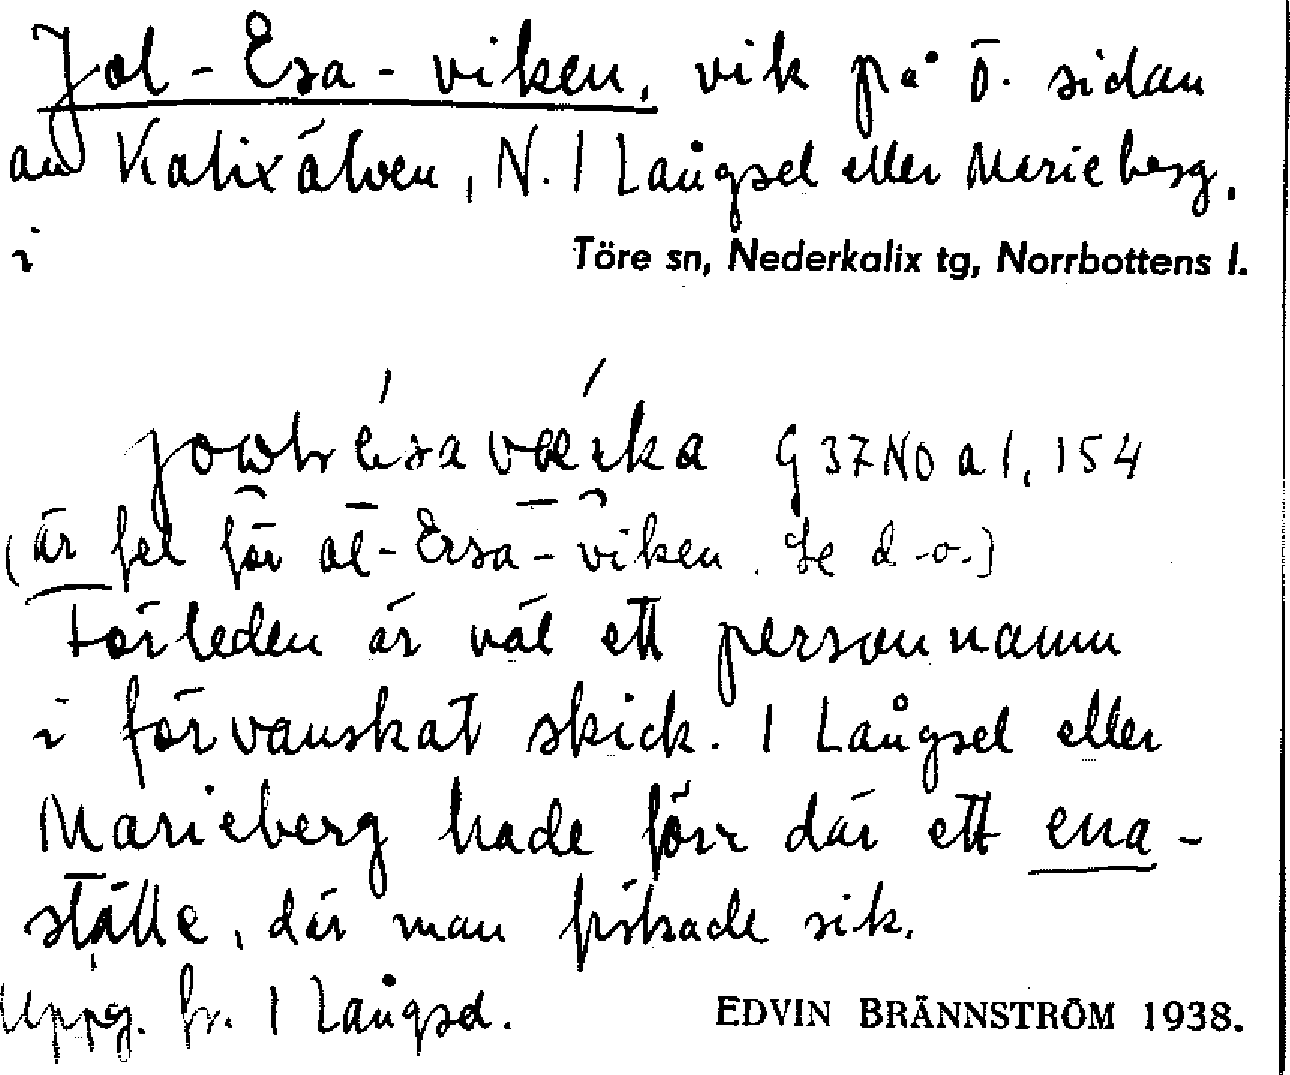 Jol-Esa-viken, vik på ö. sidan
av Kalixälven, N. I Långsel eller Marieberg,
i Töre sn, Nederkalix tg, Norrbottens l.
G 37 No a 1, 154
(är fel för ol-Ersa-viken. Se d.o.)
Förleden är väl ett personnamn
i förvanskat skick. I Långsel eller
Marieberg hade förr där ett ena-
ställe, där man fiskade sik.
Uppg. fr. I Långsel. EDVIN BRÄNNSTRÖM 1938.